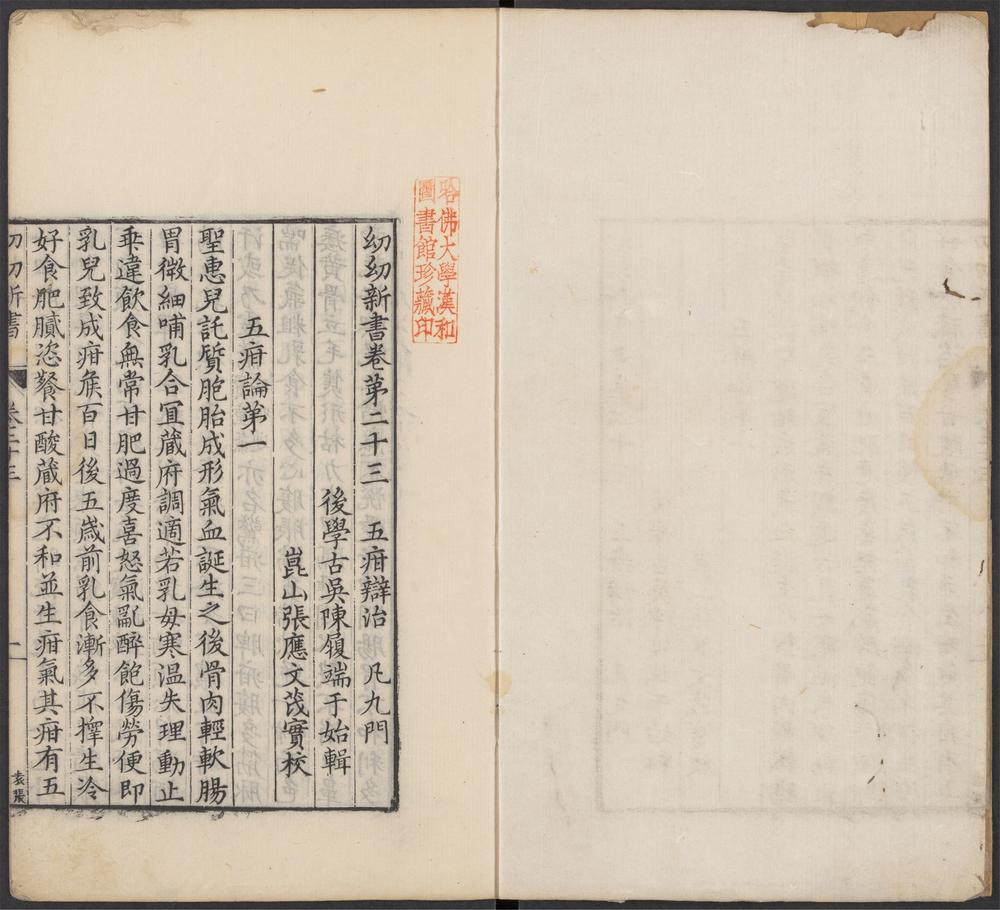 幼幼新書卷第二十三　五疳辯治　凡九門
後學古吳陳履端于始輯
崑山張應文茂實校
五疳論第一
聖惠兒託質胞胎成形氣血誕生之後骨肉輕軟腸
胃微細哺乳合冝蔵府調適若乳母寒温失理動止
乖違飲食無常甘肥過度喜怒氣亂醉飽傷勞便即
乳兒致成疳疾百日後五歲前乳食漸多不擇生冷
好食肥膩恣飡甘酸蔵府不和並生疳氣其疳有五
幼幼新書
卷二十三
一
袁張
哈佛大學漢和
圖書館珍藏印